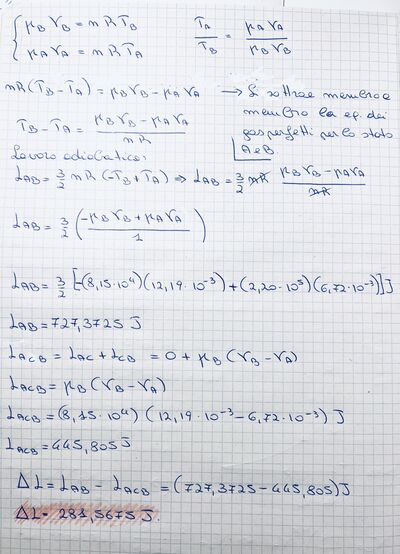 { pB VB = nRTB
pA VA = nRTA
TA/TB = pA VA / pB VB
nR(TB-TA) = pB VB - pA VA → Si sottrae membro a
membro la eq. dei
gas perfetti per lo stato
A e B
TB-TA = (pB VB - pA VA) / nR
Lavoro adiabatico:
LAB = 3/2 nR(-TB+TA) ⇒ LAB = 3/2 nR (pB VB - pA VA) / nR
LAB = 3/2 ((-pB VB + pA VA) / 1)
LAB = 3/2 [-(8,15·10⁴)(12,19·10⁻³)+(2,20·10⁵)(6,72·10⁻³)]J
LAB = 727,3725 J
LACB = LAC + LCB = 0 + pB (VB - VA)
LACB = pB (VB - VA)
LACB = (8,15·10⁴) (12,19·10⁻³ - 6,72·10⁻³) J
LACB = 445,805 J
ΔL = LAB - LACB = (727,3725 - 445,805) J
ΔL = 281,5675 J.